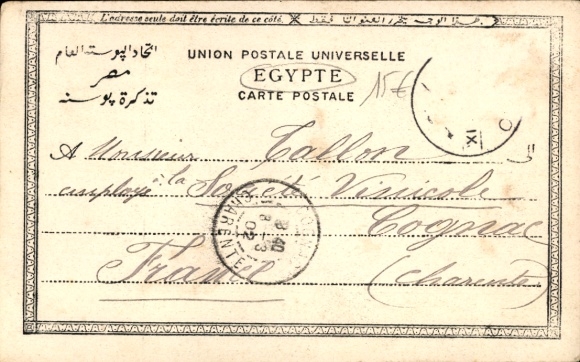 L'adresse seule doit être écrite de ce côté. هذا الوجه يكتب العنوان فقط
اتحاد البوستة العام
مصر
تذكرة بوسته
UNION POSTALE UNIVERSELLE
EGYPTE
CARTE POSTALE
15€
IX
A Monsieur Tallon
employé à la Société Vinicole
Cognac
France (Charente)
CHARENTE
8 40
02